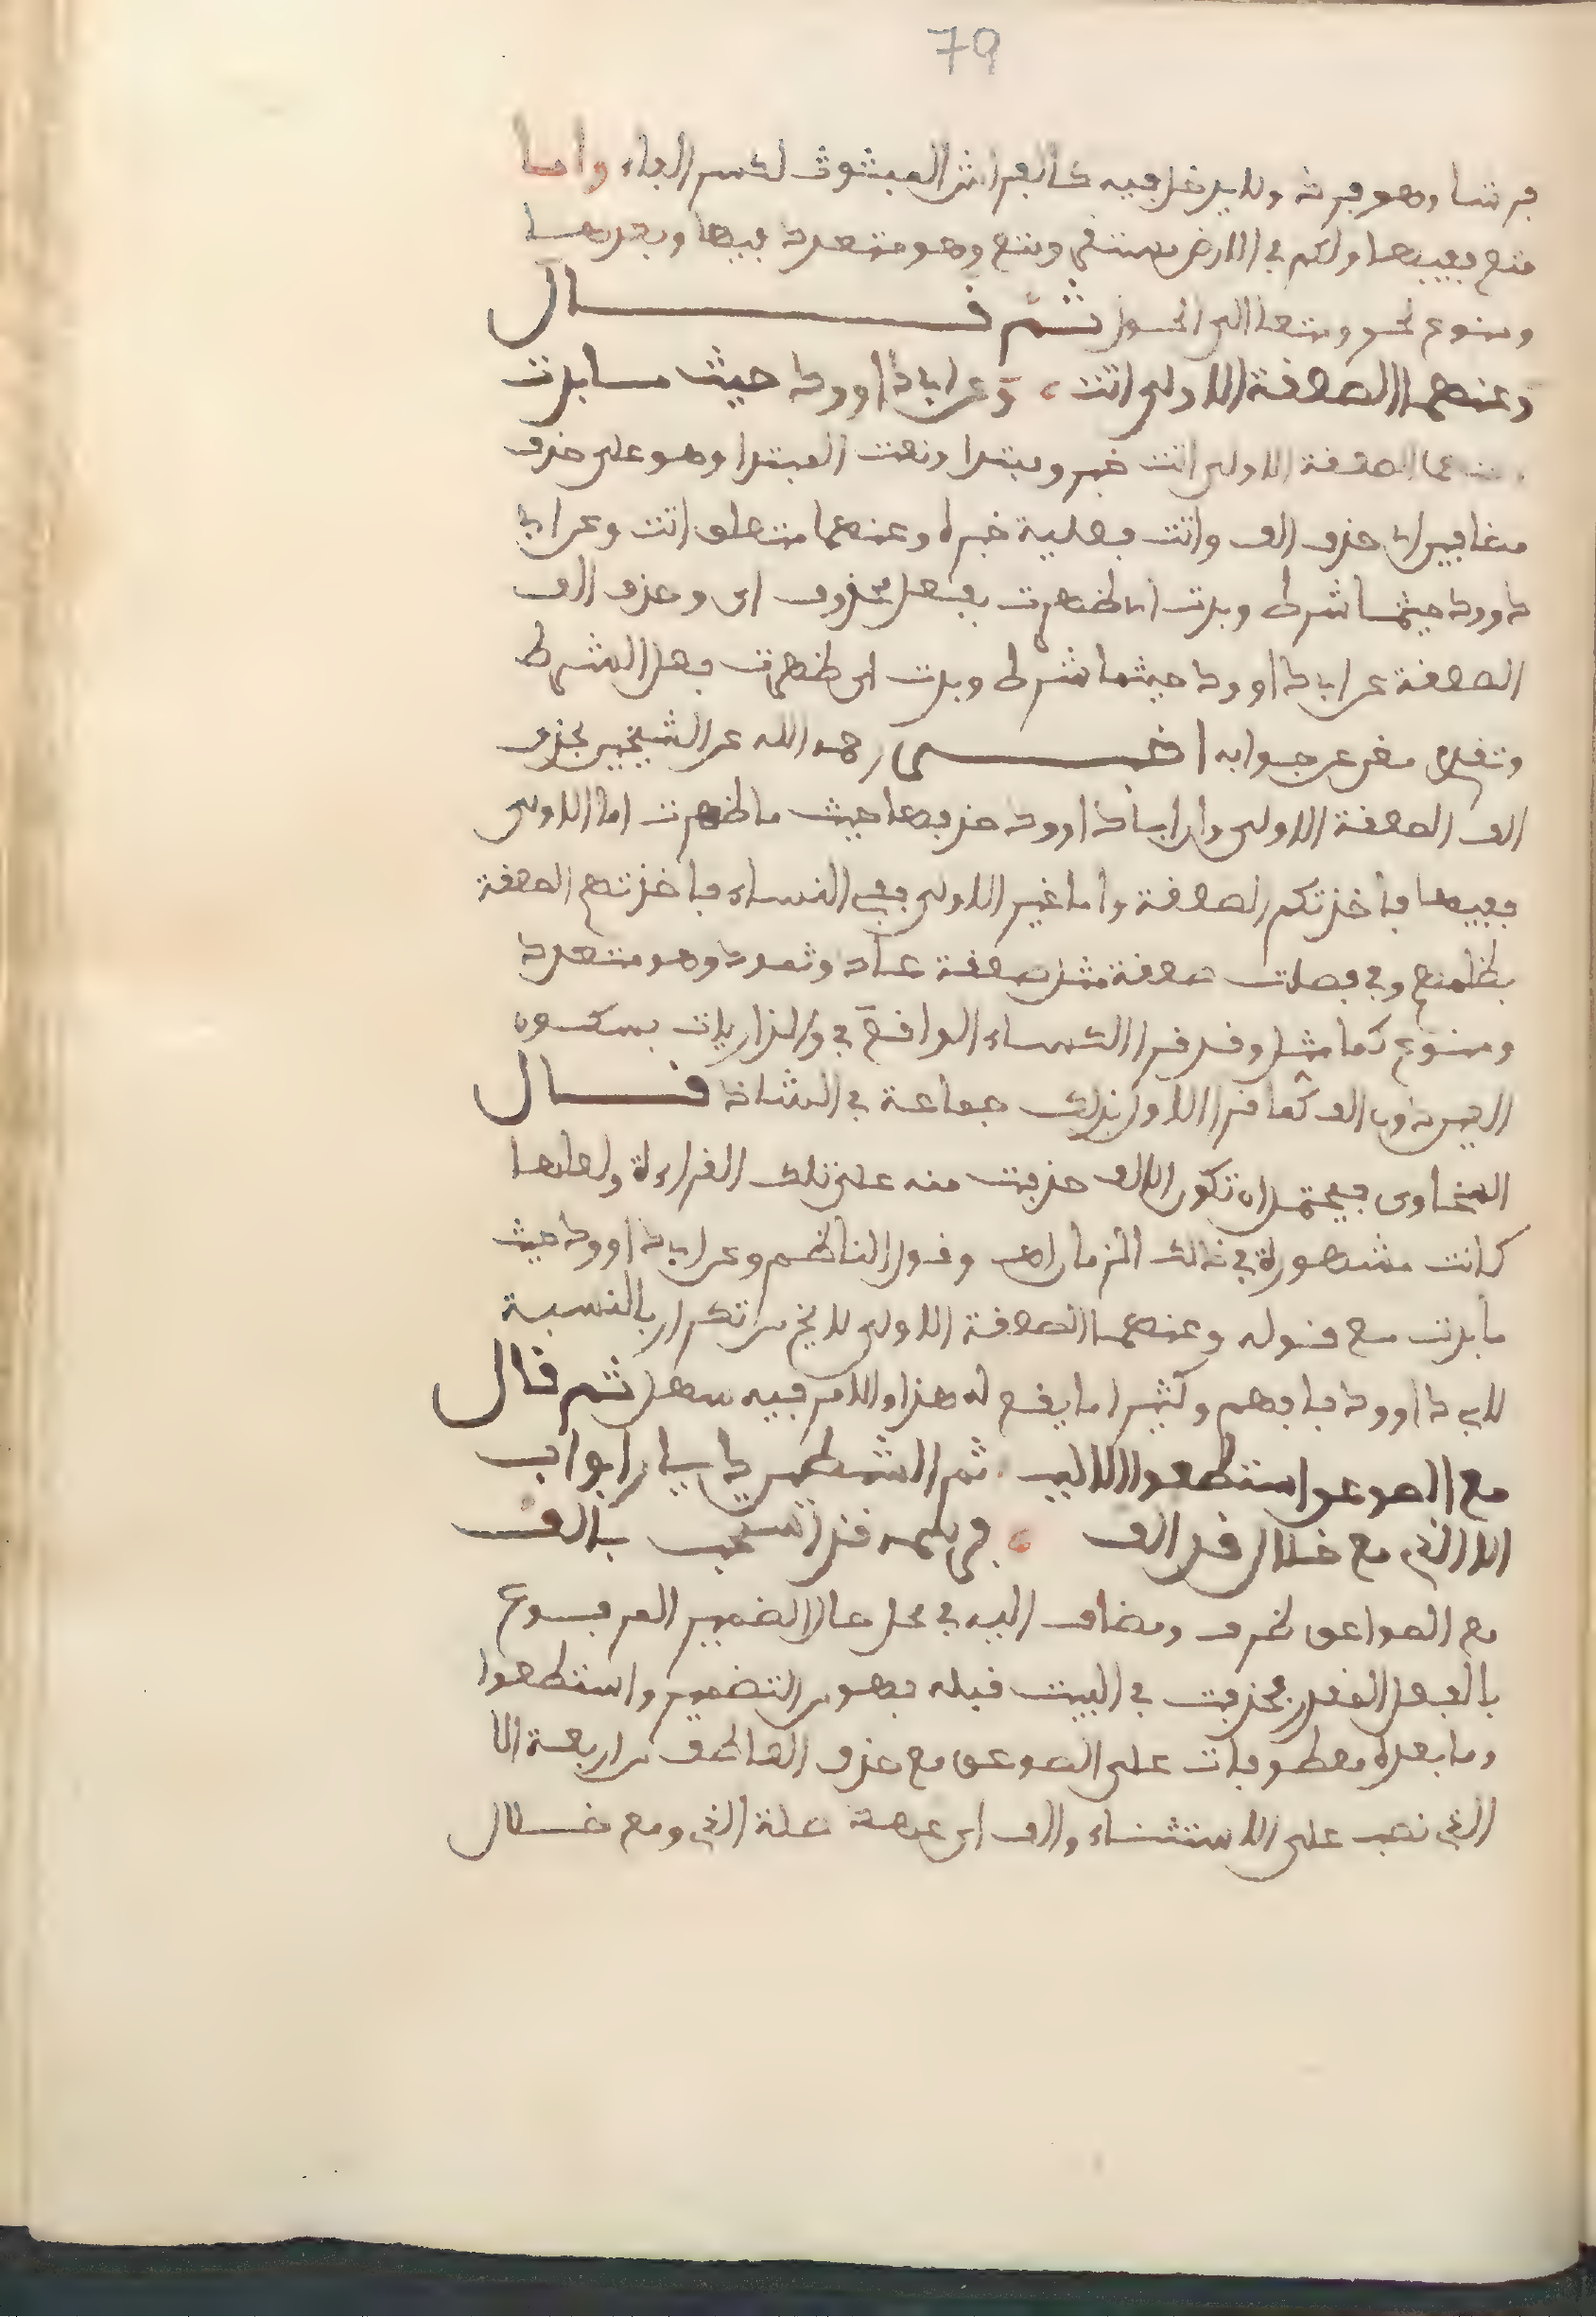 79
فرشا وهو فرش ولا يدخل فيه كالفراش المبثوث لكسر الفاء واما
متع ففيها ولكم في الارض مستقر ومتع وهو متعدد فيها وبعدها
ومنوع نحو ومتعا الى الحول ثم قال
وعنهما الصعقة الاولى اتت وعن ابي داوود حيث ما بدت
الصعقة الاولى اتت خبر ومبتدا ونعت المبتدا وهو على حذف
مضافين اي حذف الف واتت فعلية خبره وعنهما متعلق اتت وعن ابي
داوود حيثما شرط وبدت اي ظهرت بفعل محذوف اي وحذف الف
الصعقة عن ابي داوود حيثما شرط وبدت اي ظهرت فعل الشرط
وتقدم مغن عن جوابه اخبر رحمه الله عن الشيخين بحذف
الف الصعقة الاولى وان ابا داوود حذفها حيث ما ظهرت اما الاولى
ففيها فاخذتكم الصعقة واما غير الاولى ففي النساء فاخذتهم الصعقة
بظلمهم وفي فصلت صعقة مثل صعقة عاد وثمود وهو متعدد
ومنوع كما مثل وقد قرا الكساء الواقع في والذاريات بسكون
العين دون الف كما قرا الاول بذلك جماعة في الشاذ قال
السخاوي فيحتمل ان تكون الالف حذفت منه على تلك القراءة ولعلها
كانت مشهورة في ذلك الزمان اهـ وقول الناظم وعن ابي داوود حيث
ما بدت مع قوله وعنهما الصعقة الاولى لا يخ من تكرار بالنسبة
لابي داوود فافهم وكثيرا ما يقع له هذا والامر فيه سهل ثم قال
مع الصوعق استطعوا الالبب ثم الشيطين ديار ابواب
الا الذي مع خلال قد الف فرسمه قد استحب بالف
مع الصواعق ظرف ومضاف اليه في محل حال الضمير المرفوع
بالفعل المقدر بحذفت في البيت قبله فهو من التضمين واستطعوا
وما بعده معطوفات على الصوعق مع حذف العاطف من اربعة الا
الذي نصب على الاستثناء والف اي عهد صلة الذي ومع خلال